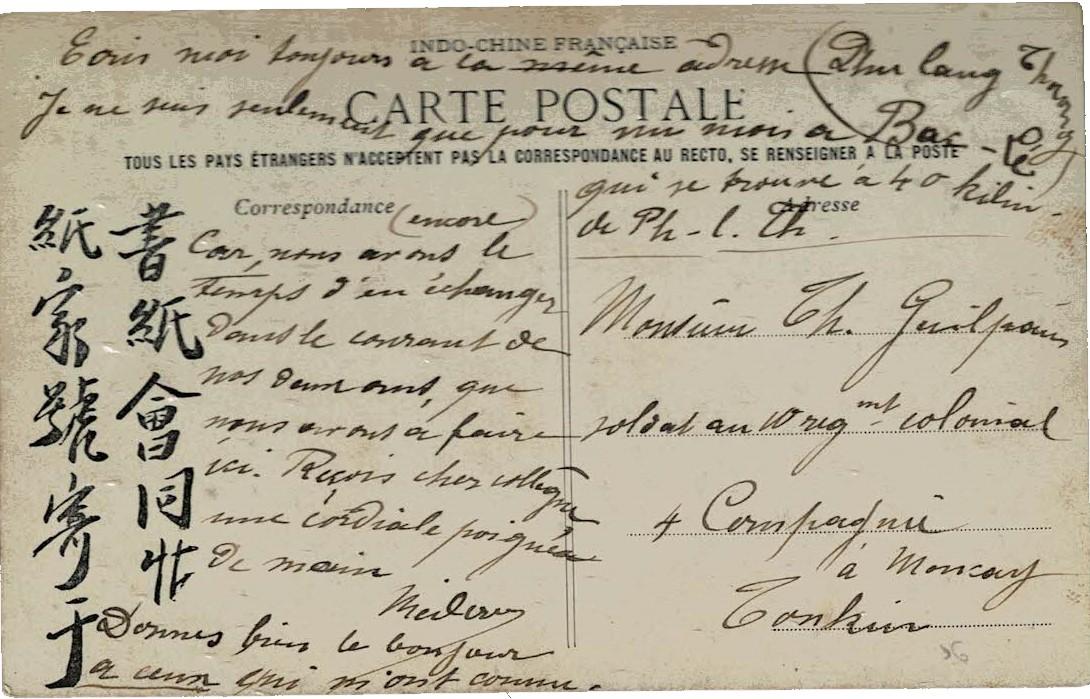 INDO-CHINE FRANÇAISE
Ecris moi toujours a la même adresse (Phu lang Thuong)
CARTE POSTALE
Je ne suis seulement que pour un mois a Bac-Lé
TOUS LES PAYS ÉTRANGERS N'ACCEPTENT PAS LA CORRESPONDANCE AU RECTO, SE RENSEIGNER A LA POSTE
qui se trouve à 40 kilm.
de Ph-l. Th.
Correspondance
Adresse
(encore)
Car, nous avons le
temps d'en échanger
dans le courant de
nos deux ans, que
nous avons à faire
ici. Reçois cher collègue
une cordiale poignée
de main
Donnes bien le bonjour
a ceux qui m'ont connu.
Monsieur Th.
soldat au 10 regmt colonial
4 Compagnie
à Moncay
Tonkin
36
書紙會同
紙家號寄于